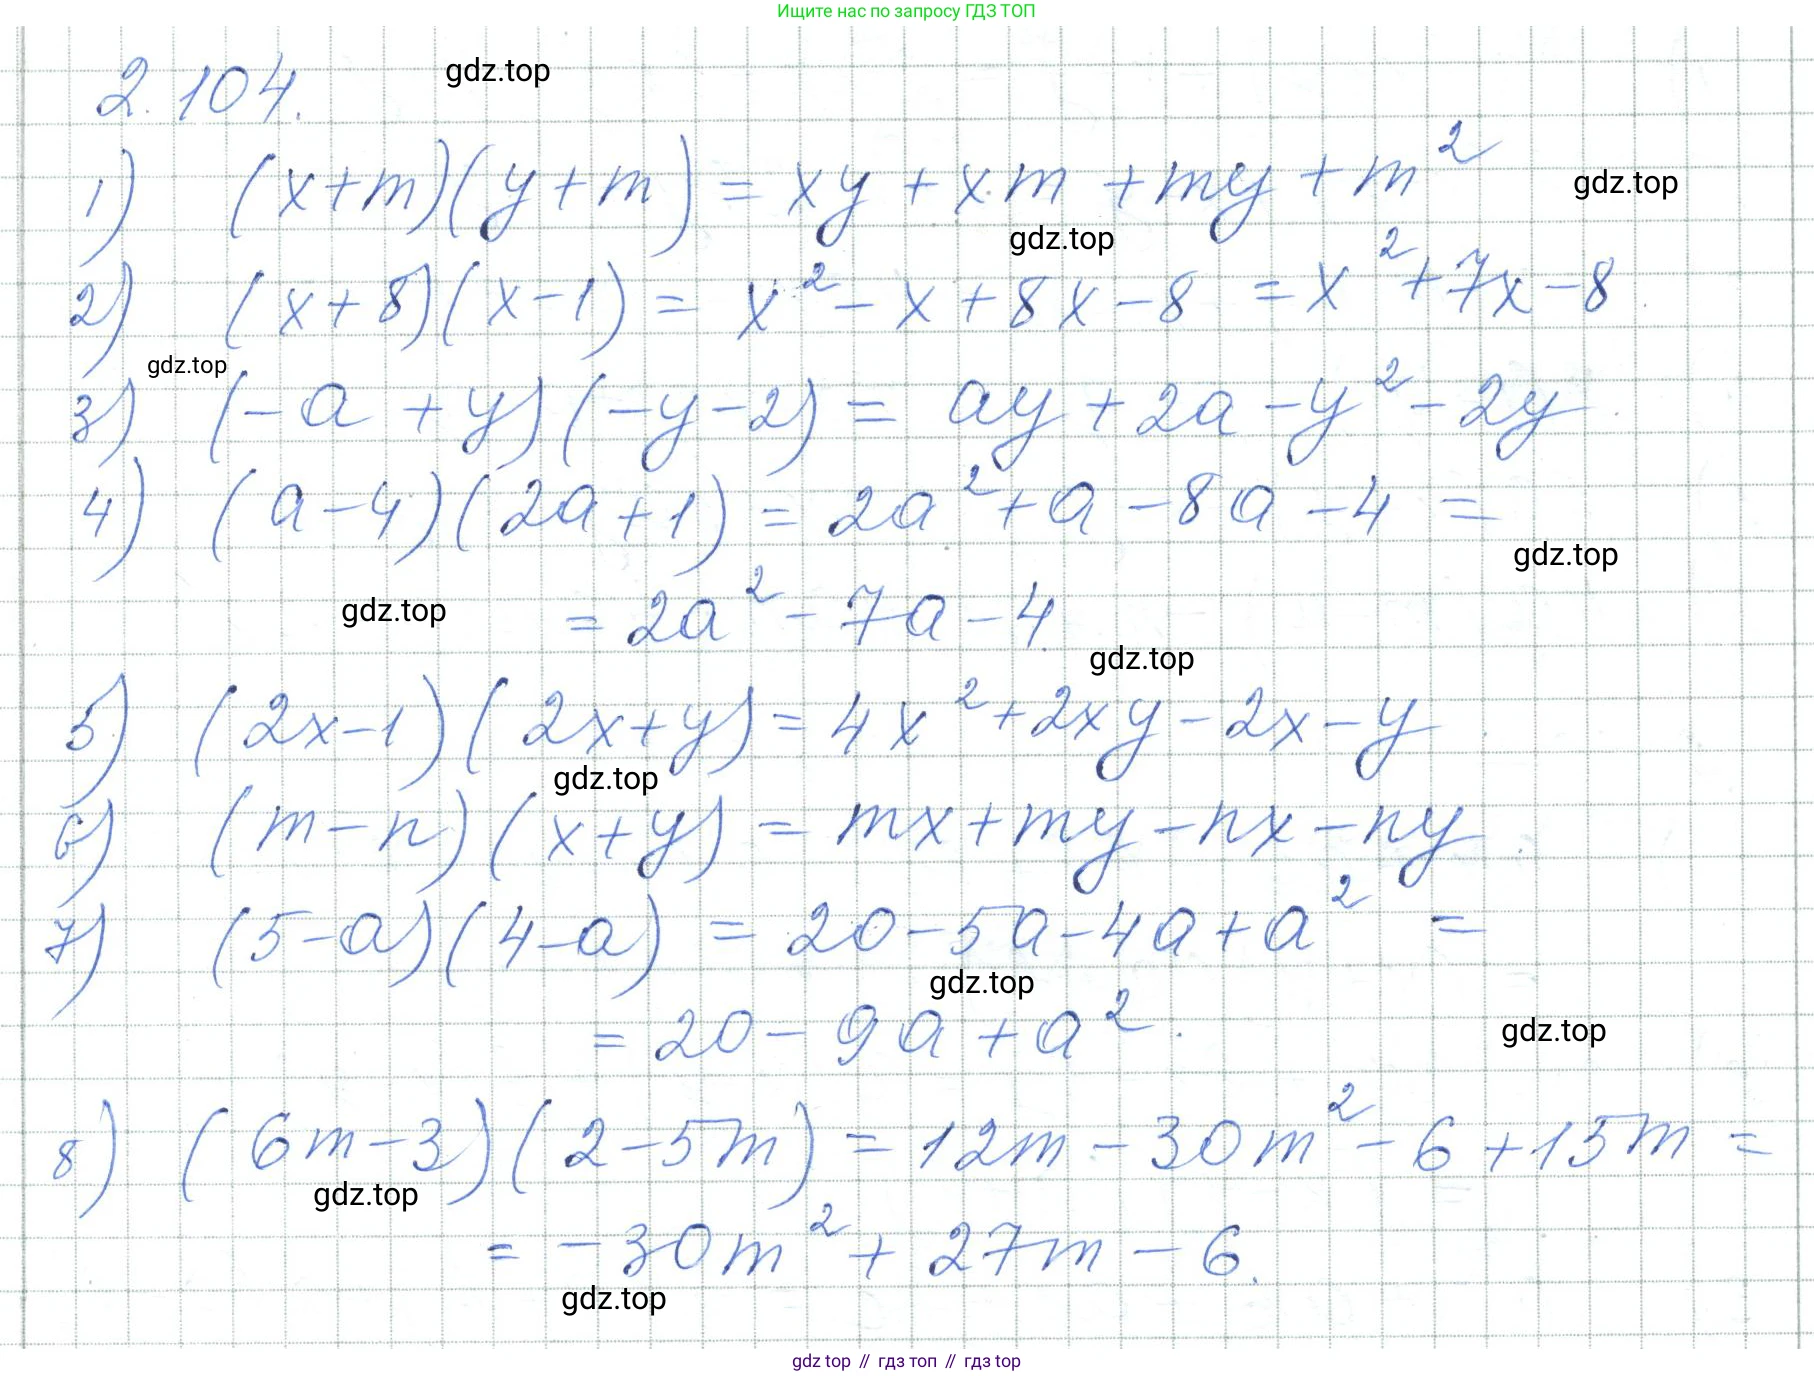 Ищите нас по запросу ГДЗ ТОП
2.104.
gdz.top
1) (x+m)(y+m) = xy + xm + my + m²
gdz.top
gdz.top
2) (x+8)(x-1) = x² - x + 8x - 8 = x² + 7x - 8
gdz.top
3) (-a + y)(-y-2) = ay + 2a - y² - 2y
4) (a-4)(2a+1) = 2a² + a - 8a - 4 =
gdz.top
gdz.top
= 2a² - 7a - 4.
gdz.top
5) (2x-1)(2x+y) = 4x² + 2xy - 2x - y
gdz.top
6) (m-n)(x+y) = mx + my - nx - ny
7) (5-a)(4-a) = 20 - 5a - 4a + a² =
gdz.top
= 20 - 9a + a².
gdz.top
8) (6m-3)(2-5m) = 12m - 30m² - 6 + 15m =
gdz.top
= -30m² + 27m - 6.
gdz.top
gdz top // гдз топ // гдз top